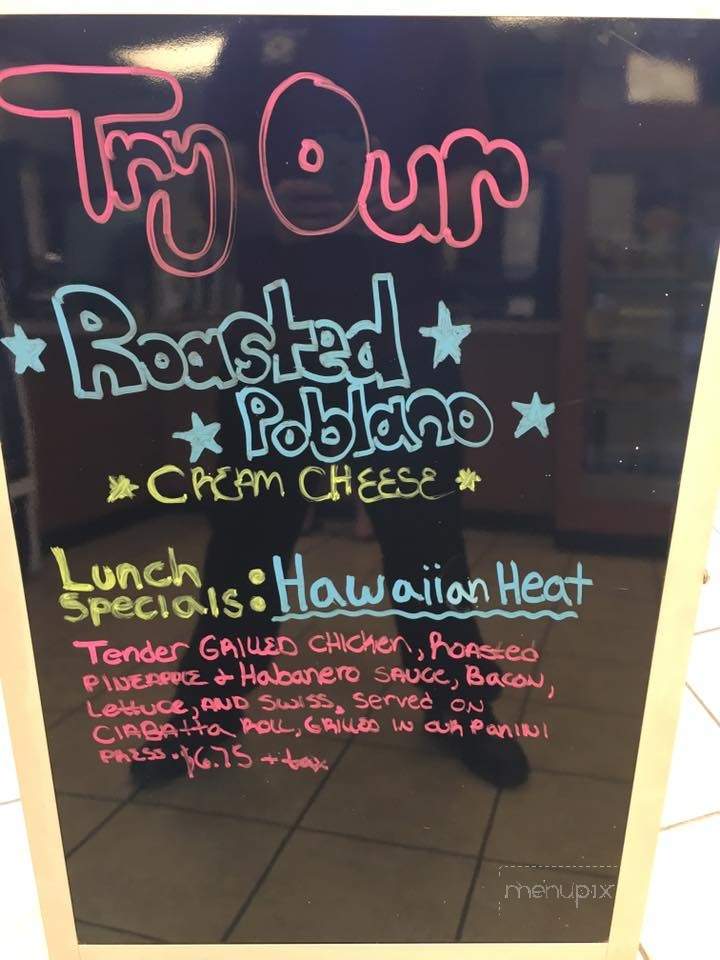 Try Our
Roasted
Poblano
CREAM CHEESE
Lunch
Specials: Hawaiian Heat
Tender GRILLED CHICKEN, ROASTED
PINEAPPLE & Habanero SAUCE, BACON,
LETTUCE, AND SWISS, SERVED ON
CIABATTA ROLL, GRILLED IN OUR PANINI
PRESS. $6.75 + tax
menupix